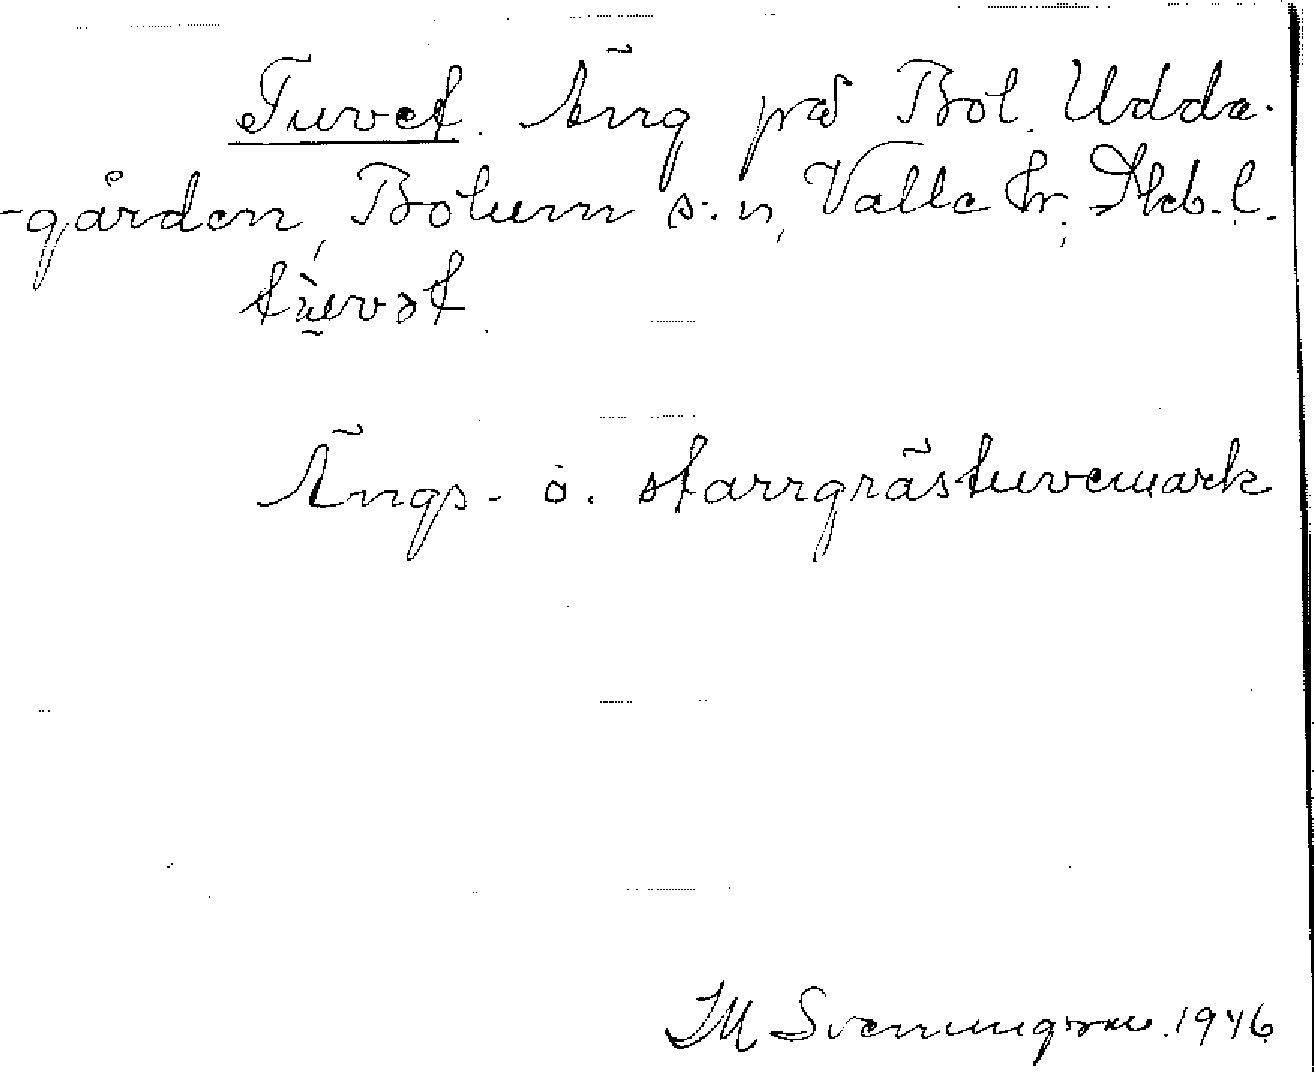 Tuvet. Äng på Bol. Udda-
-gården, Bolum s:n, Valle hr; Skb. l.
tu̱vət.
Ängs- o. starrgrästuvemark
IM Svenningson. 1946